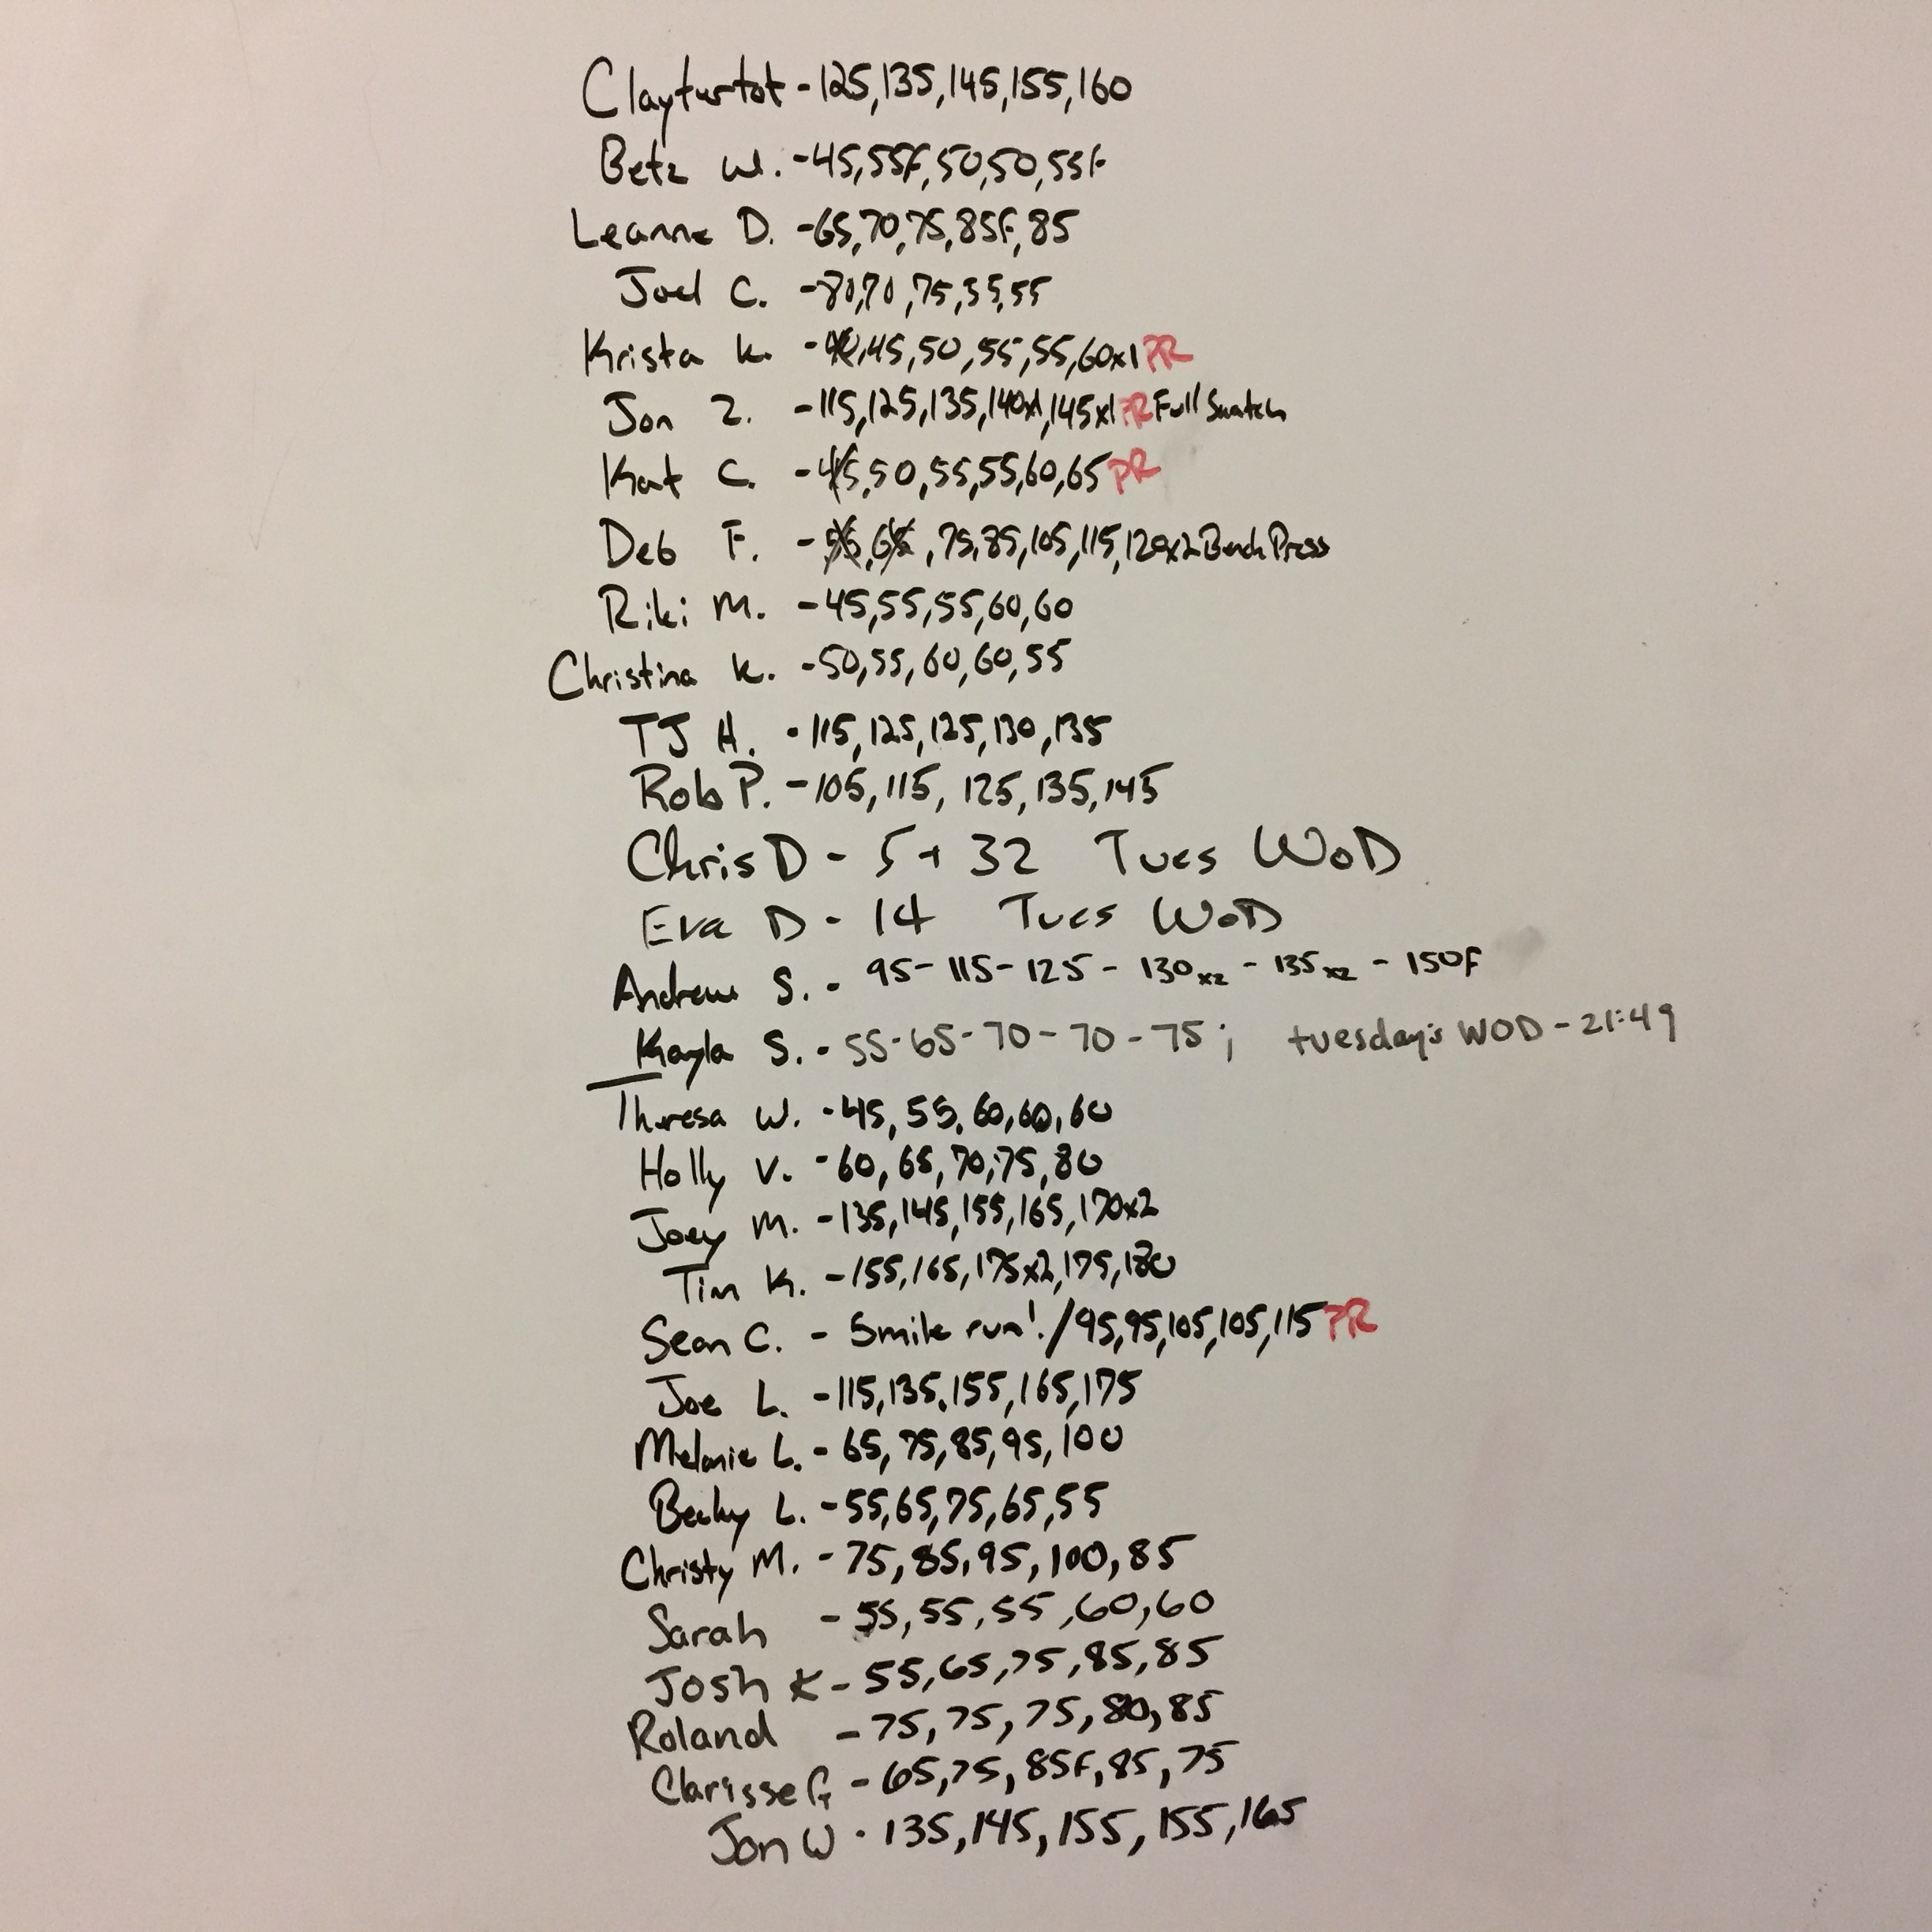 Clayturtot - 125,135,145,155,160
Betz W. - 45,55F,50,50,55F
Leanne D. - 65,70,75,85F,85
Joel C. - 80,70,75,55,55
Krista K. - 45,50,55,55,60x1 PR
Jon Z. - 115,125,135,140x1,145x1 PR Full Snatch
Kat C. - 45,50,55,55,60,65 PR
Deb F. - 55,65,75,85,105,115,120x2 Bench Press
Riki M. - 45,55,55,60,60
Christina K. - 50,55,60,60,55
TJ H. - 115,125,125,130,135
Rob P. - 105,115,125,135,145
Chris D - 5+32 Tues WOD
Eva D - 14 Tues WOD
Andrew S. - 95-115-125-130x2-135x2-150F
Kayla S. - 55-65-70-70-75; tuesday's WOD - 21:49
Theresa W. - 45,55,60,60,60
Holly V. - 60,65,70,75,80
Joey M. - 135,145,155,165,170x2
Tim K. - 155,165,175x2,175,180
Sean C. - 5 mile run! / 95,95,105,105,115 PR
Joe L. - 115,135,155,165,175
Melanie L. - 65,75,85,95,100
Becky L. - 55,65,75,65,55
Christy M. - 75,85,95,100,85
Sarah - 55,55,55,60,60
Josh K - 55,65,75,85,85
Roland - 75,75,75,80,85
Clarisse G - 65,75,85F,85,75
Jon W - 135,145,155,155,165